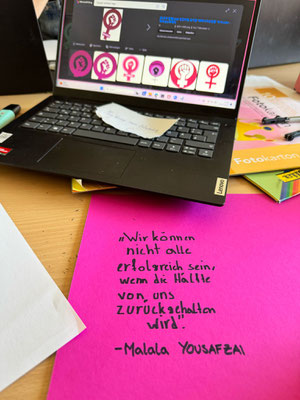 Lenovo
Fotokarton
„Wir können
nicht alle
erfolgreich sein,
wenn die Hälfte
von uns
zurückgehalten
wird".
-Malala YOUSAFZAI